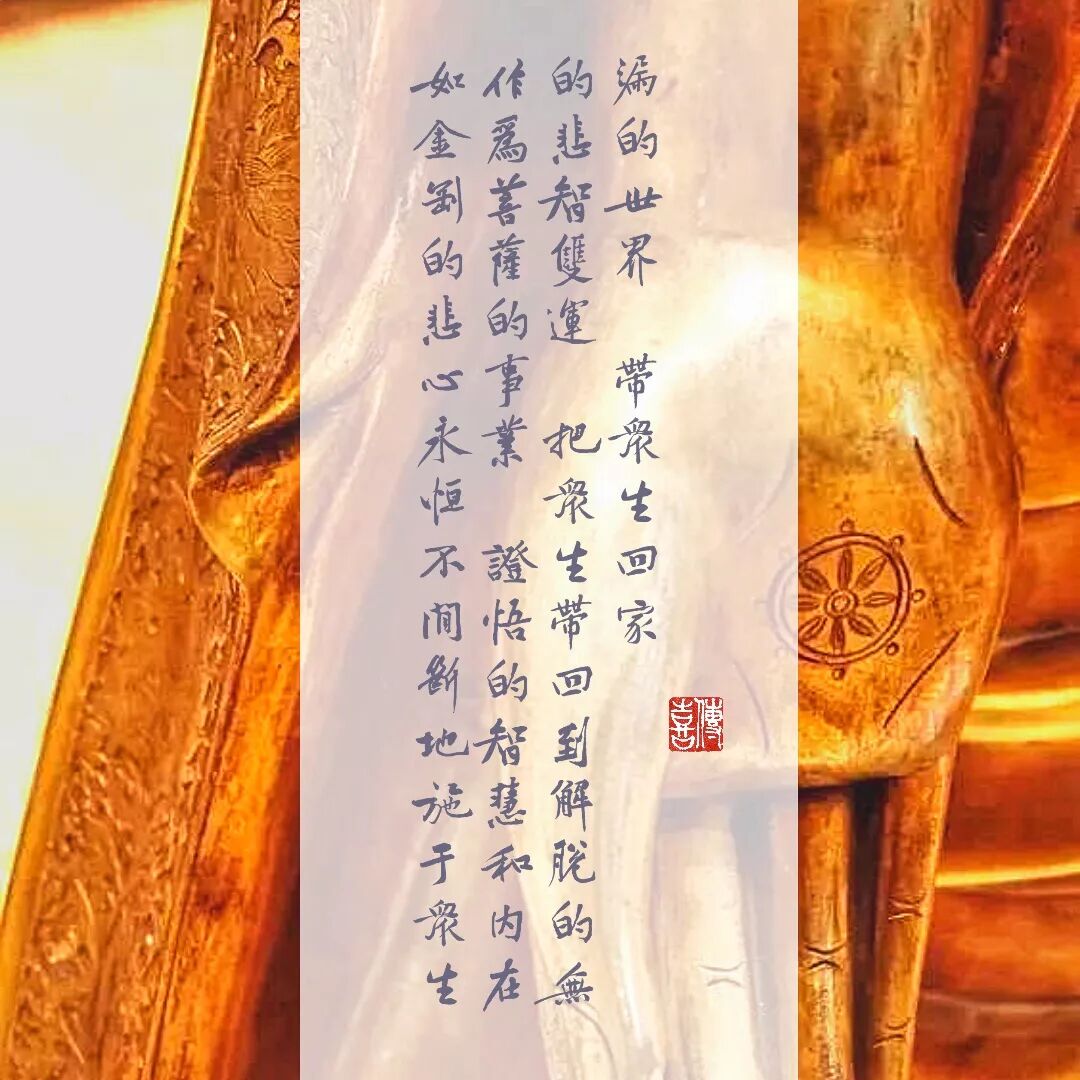 如金剛的悲心永恒不間斷地施于衆生
作爲菩薩的事業 證悟的智慧和内在
的悲智雙運 把衆生帶回到解脫的無
漏的世界 帶衆生回家
傳喜